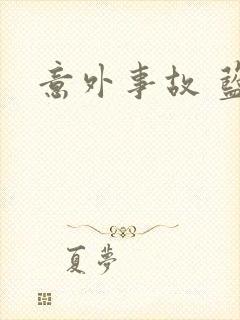 意外事故
夏夢